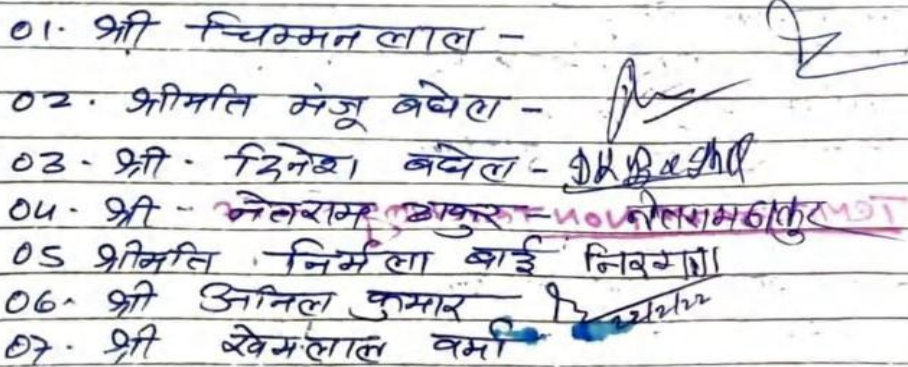 01. श्री चिम्मन लाल -
02. श्रीमति मंजू बघेल -
03 - श्री - दिनेश बघेल -
04 - श्री - नेतराम ठाकुर - नेतराम ठाकुर
05 श्रीमति निर्मला बाई निरमला
06 - श्री अनिल कुमार 22/2/22
07 - श्री खेमलाल वर्मा